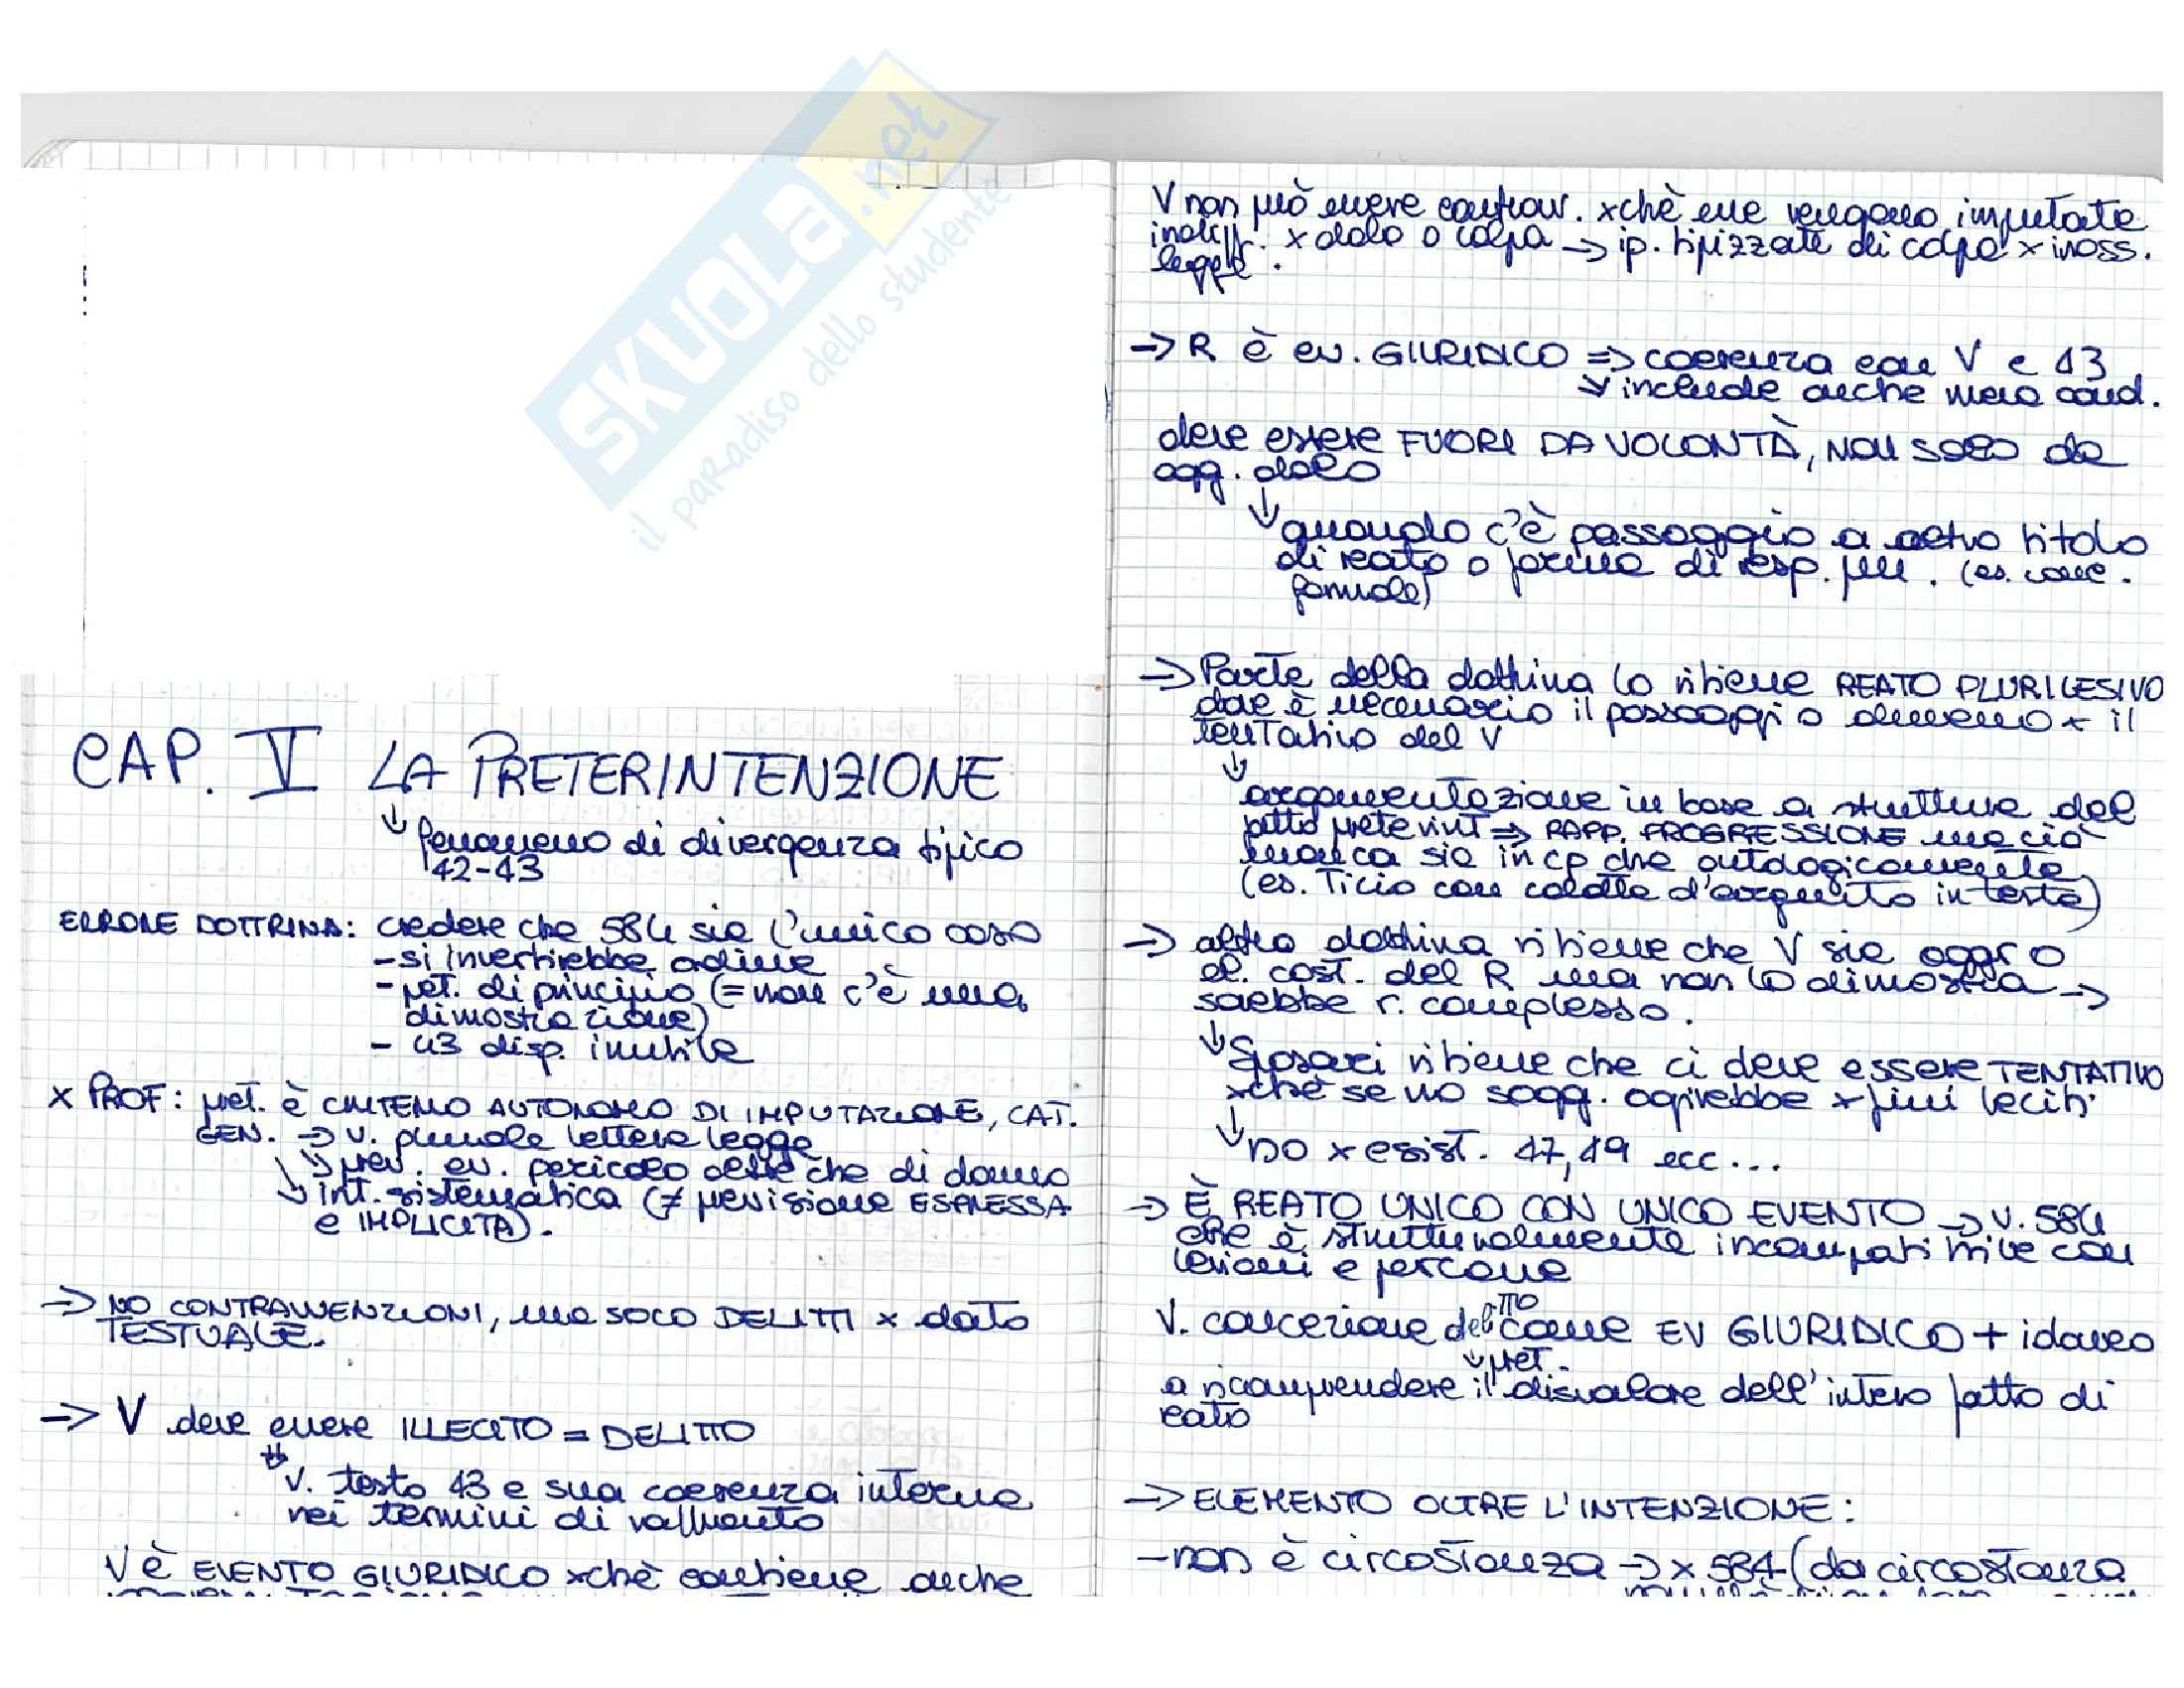 CAP. V LA PRETERINTENZIONE
↓ fenomeno di divergenza tipico
42-43
ERRORE DOTTRINA: credere che 584 sia l'unico caso
- si invertirebbe ordine
- pet. di principio (= non c'è una
dimostrazione)
- 43 disp. inutile
x PROF: pret. è CRITERIO AUTONOMO DI IMPUTAZIONE, CAT.
GEN. → v. plurale lettera legge
↘ prev. ev. pericolo oltre che di danno
↘ int. sistematica (≠ previsione ESPRESSA
e IMPLICITA).
→ NO CONTRAVVENZIONI, ma SOLO DELITTI x dato
TESTUALE.
→ V deve essere ILLECITO = DELITTO
v. testo 43 e sua coerenza interna
nei termini di raffronto
V è EVENTO GIURIDICO xchè contiene anche
V non può essere contrav. xchè esse vengono imputate
indiff. x dolo o colpa → ip. tipizzate di colpa x inoss.
legge.
→ R è ev. GIURIDICO ⇒ coerenza con V e 43
↘ include anche mera cond.
deve essere FUORI DA VOLONTÀ, NON SOLO da
ogg. dolo
↓ quando c'è passaggio a altro titolo
di reato o forma di resp. pen. (es. conc.
formale)
→ Parte della dottrina lo ritiene REATO PLURILESIVO
dove è necessario il passaggio almeno x il
tentativo del V
↓
argomentazione in base a struttura del
fatto preterint ⇒ RAPP. PROGRESSIONE ma ciò
manca sia in cp che ontologicamente
(es. Ticio con in testa)
→ altra dottrina ritiene che V sia aggr o
el. cost. del R ma non lo dimostra →
sarebbe r. complesso.
↓ ritiene che ci deve essere TENTATIVO
xchè se no sogg. agirebbe x fini leciti
↓ NO x esist. 47, 49 ecc...
→ È REATO UNICO CON UNICO EVENTO → v. 584
che è strutturalmente incompatibile con
lesioni e percosse
V. concezione delitto come EV GIURIDICO + idoneo
↓ pret.
a ricomprendere il disvalore dell'intero fatto di
reato
→ ELEMENTO OLTRE L'INTENZIONE:
- non è circostanza → x 584 (da circostanza
SKUOLA.net
il paradiso dello studente